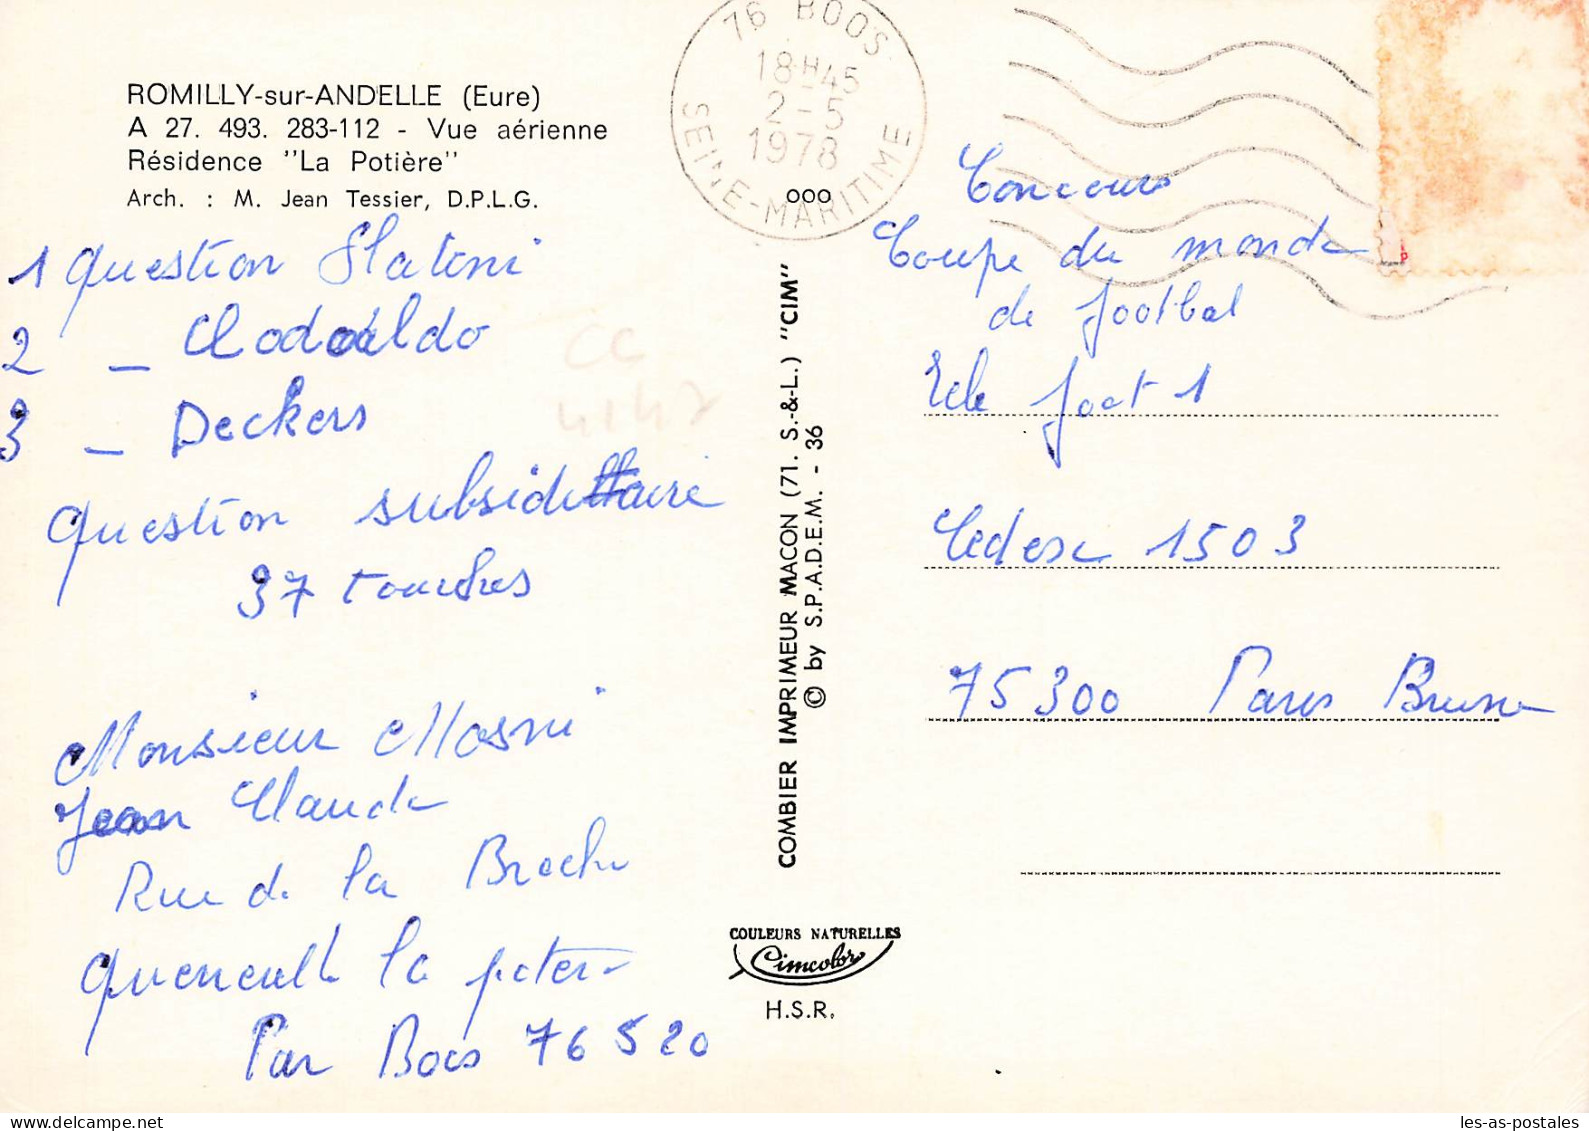 ROMILLY-sur-ANDELLE (Eure)
A 27. 493. 283-112 - Vue aérienne
Résidence "La Potière"
Arch. : M. Jean Tessier, D.P.L.G.
76 BOOS
18H45
2-5
1978
SEINE-MARITIME
000
1 Question Platoni
2 _ Clodoaldo
3 _ Deckers
Question subsidiaire
37 touches
Monsieur Mosni
Jean Claude
Rue de la Broche
Quevreville la poter-
Par Boos 76520
CC
4147
COMBIER IMPRIMEUR MACON (71. S.-&-L.) "CIM"
© by S.P.A.D.E.M. - 36
COULEURS NATURELLES
Cimcolor
H.S.R.
Concours
Coupe du monde
de footbal
Tele foot 1
Cedex 1503
75300 Paris Brune
delcampe.net
les-as-postales